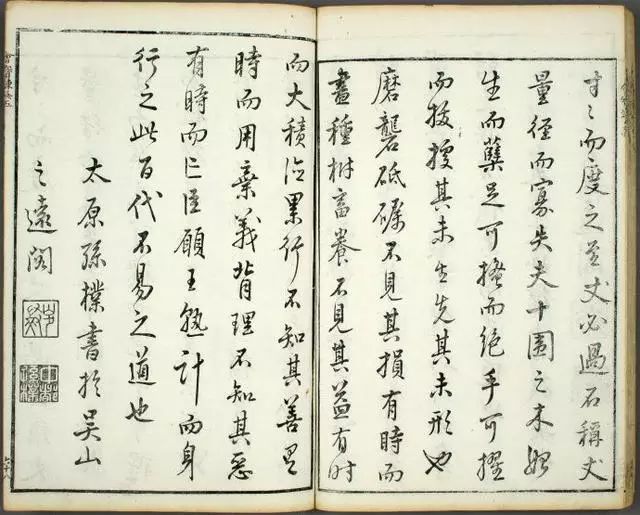 寸〻而度之至丈必過石稱丈
量徑而寡失夫十圍之木始
生而蘗足可搔而絕手可擢
而拔據其未生先其未形也
磨礱砥礪不見其損有時而
盡種樹畜養不見其益有时
而大積德累行不知其善有
時而用棄義背理不知其惡
有時而亡臣願王熟計而身
行之此百代不易之道也
太原孫樸書於吳山
之遠閣